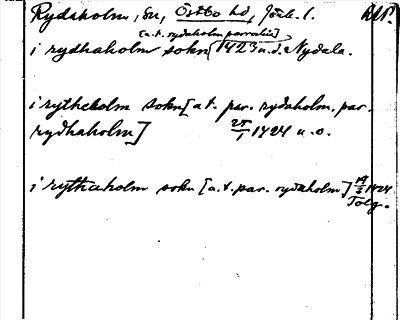 Rydaholm, sn, Östbo hd, Jönk. l. RAP.
[a.t. rydaholm parrochia]
i rydhaholm sokn [1423 u.d. Nydala.
i rytheholm sokn [a t. par. rydaholm. par.
rydhaholm] 25/1 1424 u.o.
i rythaholm sokn [a.t. par. rydaholm] 19/2 1424
Tolg.